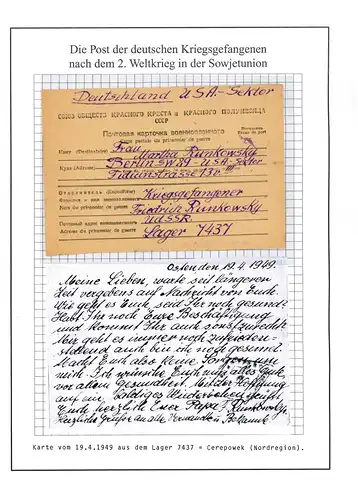 Die Post der deutschen Kriegsgefangenen
nach dem 2. Weltkrieg in der Sowjetunion
Deutschland USA-Sektor
СОЮЗ ОБЩЕСТВ КРАСНОГО КРЕСТА и КРАСНОГО ПОЛУМЕСЯЦА
СССР
Почтовая карточка военнопленного
Carte postale du prisonnier de guerre
Кому (Destinataire) Frau
Martha Runkowsky
Куда (Adresse) Berlin SW 29 - USA-Sektor
Fidicinstrasse 13
Отправитель (Expéditeur) Kriegsgefangener
Фамилия и имя военнопленного
Nom du prisonnier de guerre Friedrich Runkowsky
UdSSR
Почтовый адрес военнопленного
Adresse du prisonnier de guerre Lager 7437
Osten den 19.4.1949.
Meine Lieben, warte seit längerer
Zeit vergebens auf Nachricht von Euch.
Wie geht es Euch, seid Ihr noch gesund?
Habt Ihr noch Eure Beschäftigung
und kommt Ihr auch sonst zurecht?
Mir geht es immer noch zufrieden-
stellend auch bin ich noch gesund.
Macht Euch also keine Sorgen um
mich. Ich wünsche Euch alles Gute
vor allem Gesundheit. Mit der Hoffnung
auf ein baldiges Wiedersehen grüßt
Euch herzlich Euer Papa
Herzliche Grüße an alle Verwandten u. Bekannte
Karte vom 19.4.1949 aus dem Lager 7437 = Cerepowek (Nordregion).